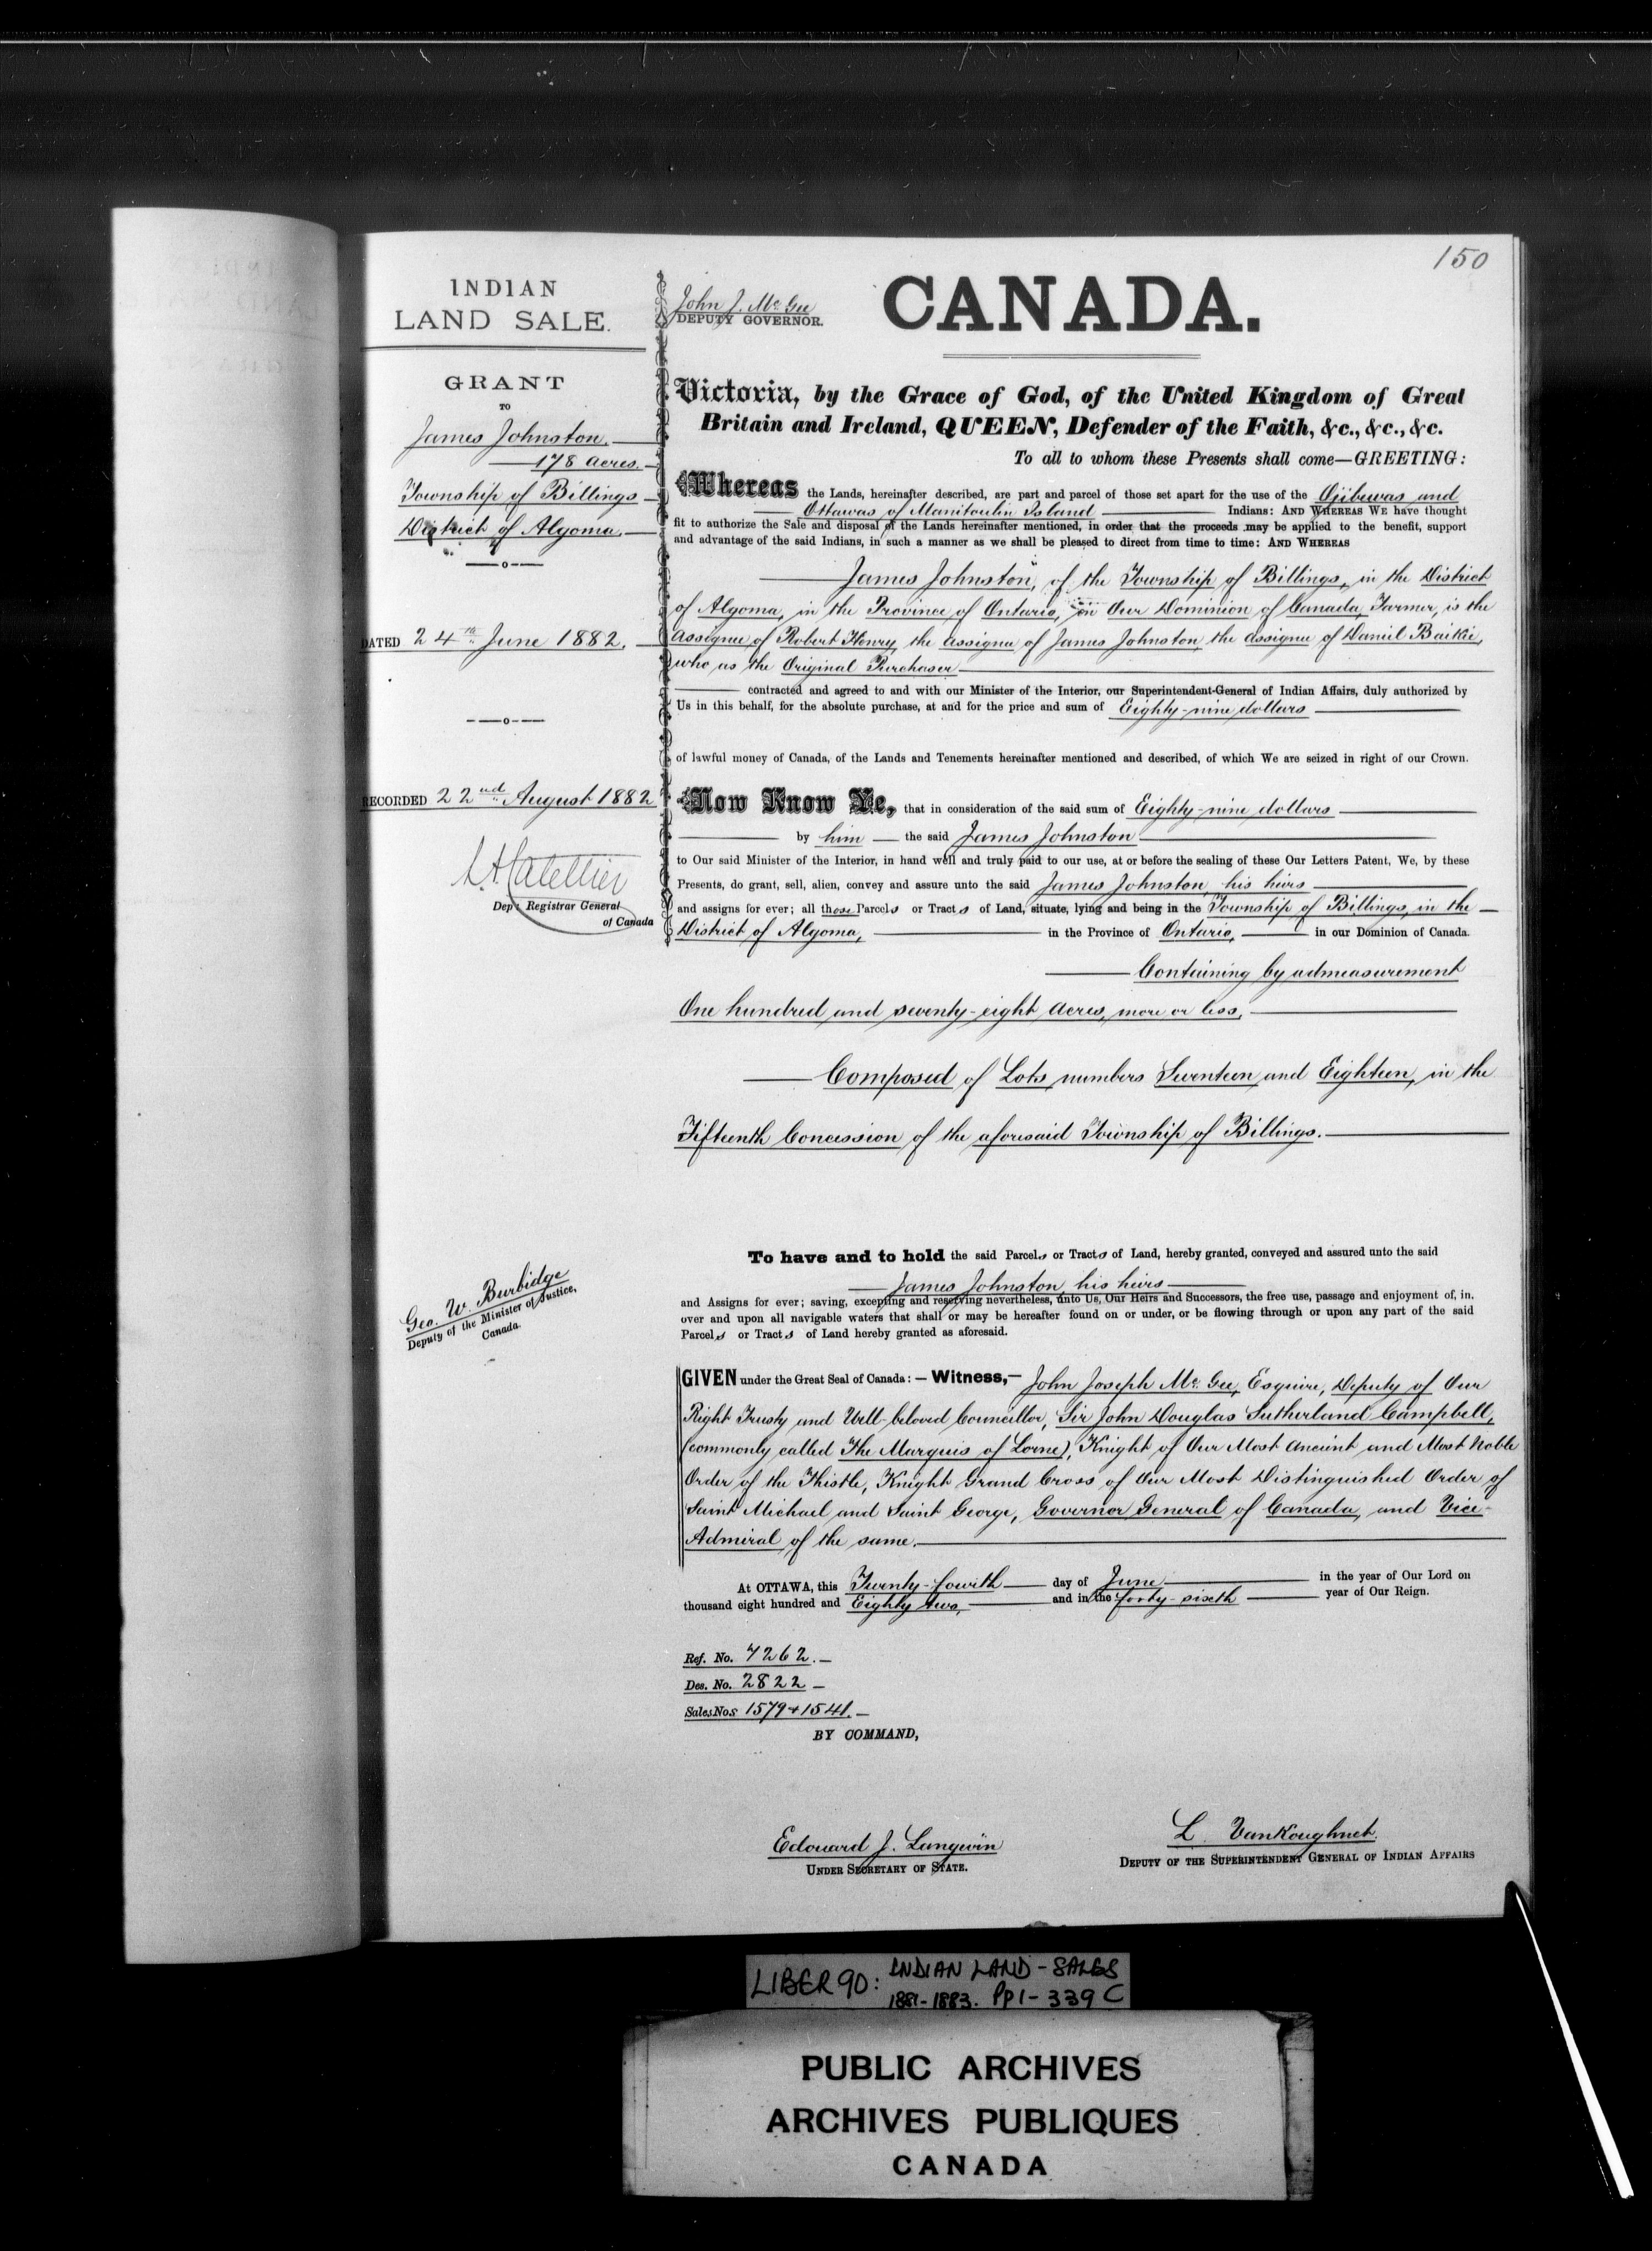 150
INDIAN
LAND SALE.
GRANT
TO
James Johnston.
178 Acres.
Township of Billings
District of Algoma.
DATED 24th June 1882.
RECORDED 22nd August 1882
Dep: Registrar General
of Canada
Geo. W. Burbidge
Deputy of the Minister of Justice,
Canada.
John J. McGee
DEPUTY GOVERNOR.
CANADA.
Victoria, by the Grace of God, of the United Kingdom of Great
Britain and Ireland, QUEEN, Defender of the Faith, &c., &c., &c.
To all to whom these Presents shall come—GREETING:
Whereas the Lands, hereinafter described, are part and parcel of those set apart for the use of the Ojibewas and
Ottawas of Manitoulin Island Indians: AND WHEREAS WE have thought
fit to authorize the Sale and disposal of the Lands hereinafter mentioned, in order that the proceeds may be applied to the benefit, support
and advantage of the said Indians, in such a manner as we shall be pleased to direct from time to time: AND WHEREAS
James Johnston, of the Township of Billings, in the District
of Algoma, in the Province of Ontario, in Our Dominion of Canada, Farmer, is the
Assignee of Robert Henry, the assignee of James Johnston, the assignee of Daniel Baikie,
who as the Original Purchaser
contracted and agreed to and with our Minister of the Interior, our Superintendent-General of Indian Affairs, duly authorized by
Us in this behalf, for the absolute purchase, at and for the price and sum of Eighty-nine dollars
of lawful money of Canada, of the Lands and Tenements hereinafter mentioned and described, of which We are seized in right of our Crown.
Now Know Ye, that in consideration of the said sum of Eighty-nine dollars
by him the said James Johnston
to Our said Minister of the Interior, in hand well and truly paid to our use, at or before the sealing of these Our Letters Patent, We, by these
Presents, do grant, sell, alien, convey and assure unto the said James Johnston, his heirs
and assigns for ever; all those Parcels or Tracts of Land, situate, lying and being in the Township of Billings, in the
District of Algoma, in the Province of Ontario, in our Dominion of Canada.
Containing by admeasurement
One hundred and seventy-eight acres, more or less,
Composed of Lots numbers Seventeen and Eighteen, in the
Fifteenth Concession of the aforesaid Township of Billings.
To have and to hold the said Parcels or Tracts of Land, hereby granted, conveyed and assured unto the said
James Johnston, his heirs
and Assigns for ever; saving, excepting and reserving nevertheless, unto Us, Our Heirs and Successors, the free use, passage and enjoyment of, in,
over and upon all navigable waters that shall or may be hereafter found on or under, or be flowing through or upon any part of the said
Parcels or Tracts of Land hereby granted as aforesaid.
GIVEN under the Great Seal of Canada:— Witness,— John Joseph McGee, Esquire, Deputy of Our
Right Trusty and Well-beloved Councillor, Sir John Douglas Sutherland Campbell,
(commonly called The Marquis of Lorne), Knight of Our Most Ancient and Most Noble
Order of the Thistle, Knight Grand Cross of Our Most Distinguished Order of
Saint Michael and Saint George, Governor General of Canada, and Vice-
Admiral of the same.
At OTTAWA, this Twenty-fourth day of June in the year of Our Lord on
thousand eight hundred and Eighty two, and in the forty-sixth year of Our Reign.
Ref. No. 7262.
Des. No. 2822
Sales Nos 1579 + 1541.
BY COMMAND,
Edouard J. Langevin
UNDER SECRETARY OF STATE.
L. VanKoughnet.
DEPUTY OF THE SUPERINTENDENT GENERAL OF INDIAN AFFAIRS
LIBER 90: INDIAN LAND-SALES
1881-1883. Pp 1-339 C
PUBLIC ARCHIVES
ARCHIVES PUBLIQUES
CANADA